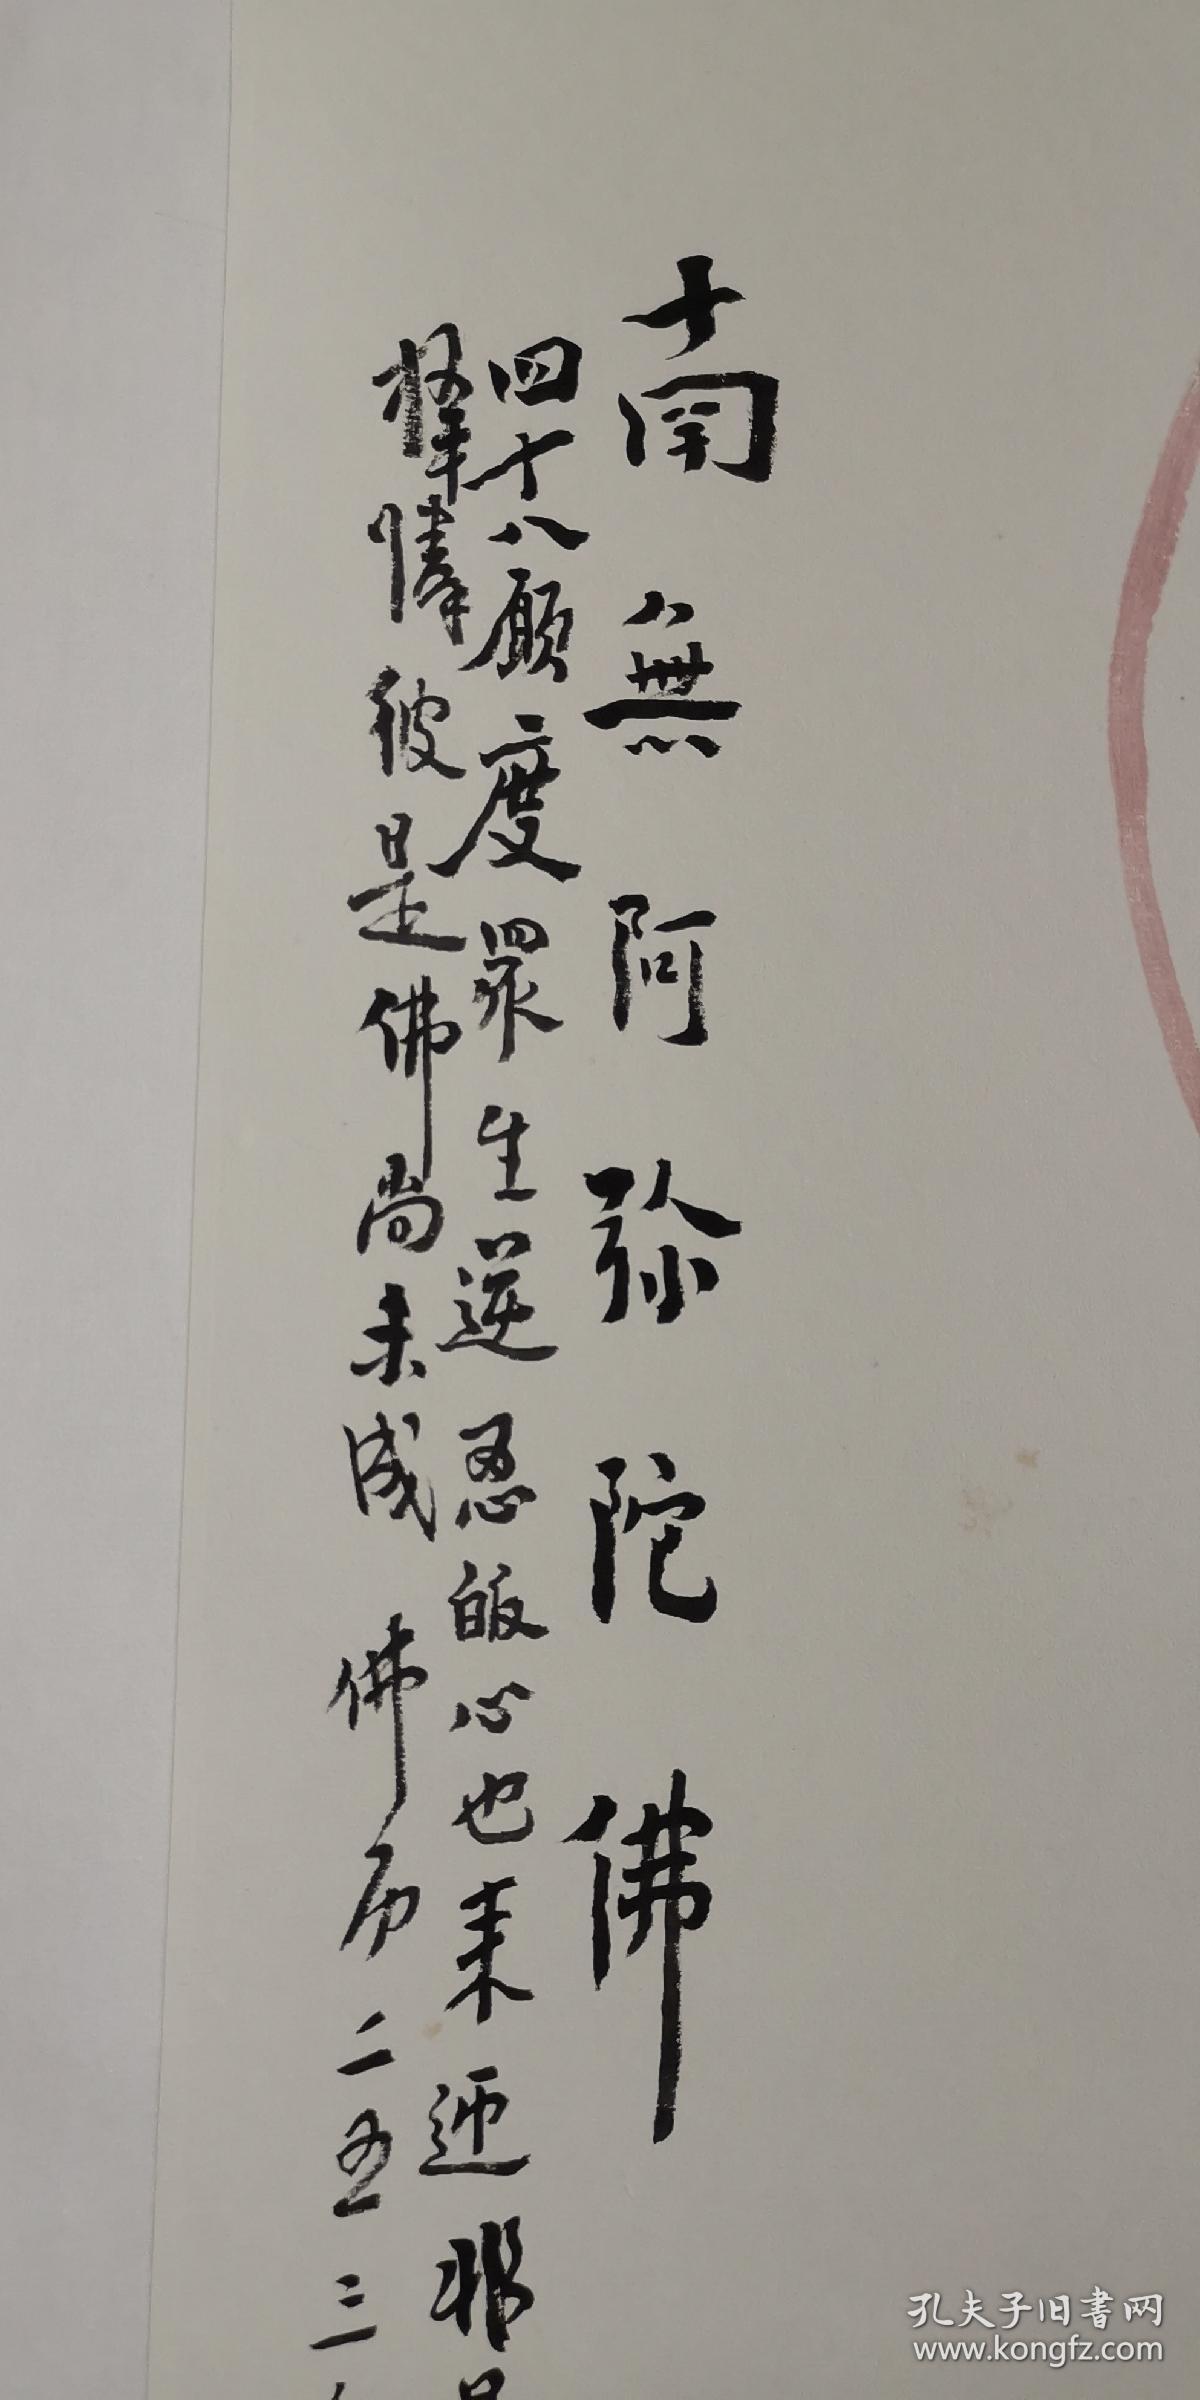 南無阿弥陀佛
四十八願度眾生逆惡的心也来迎非是
擇情彼是佛尚未成佛历二五三
孔夫子旧書网
www.kongfz.com